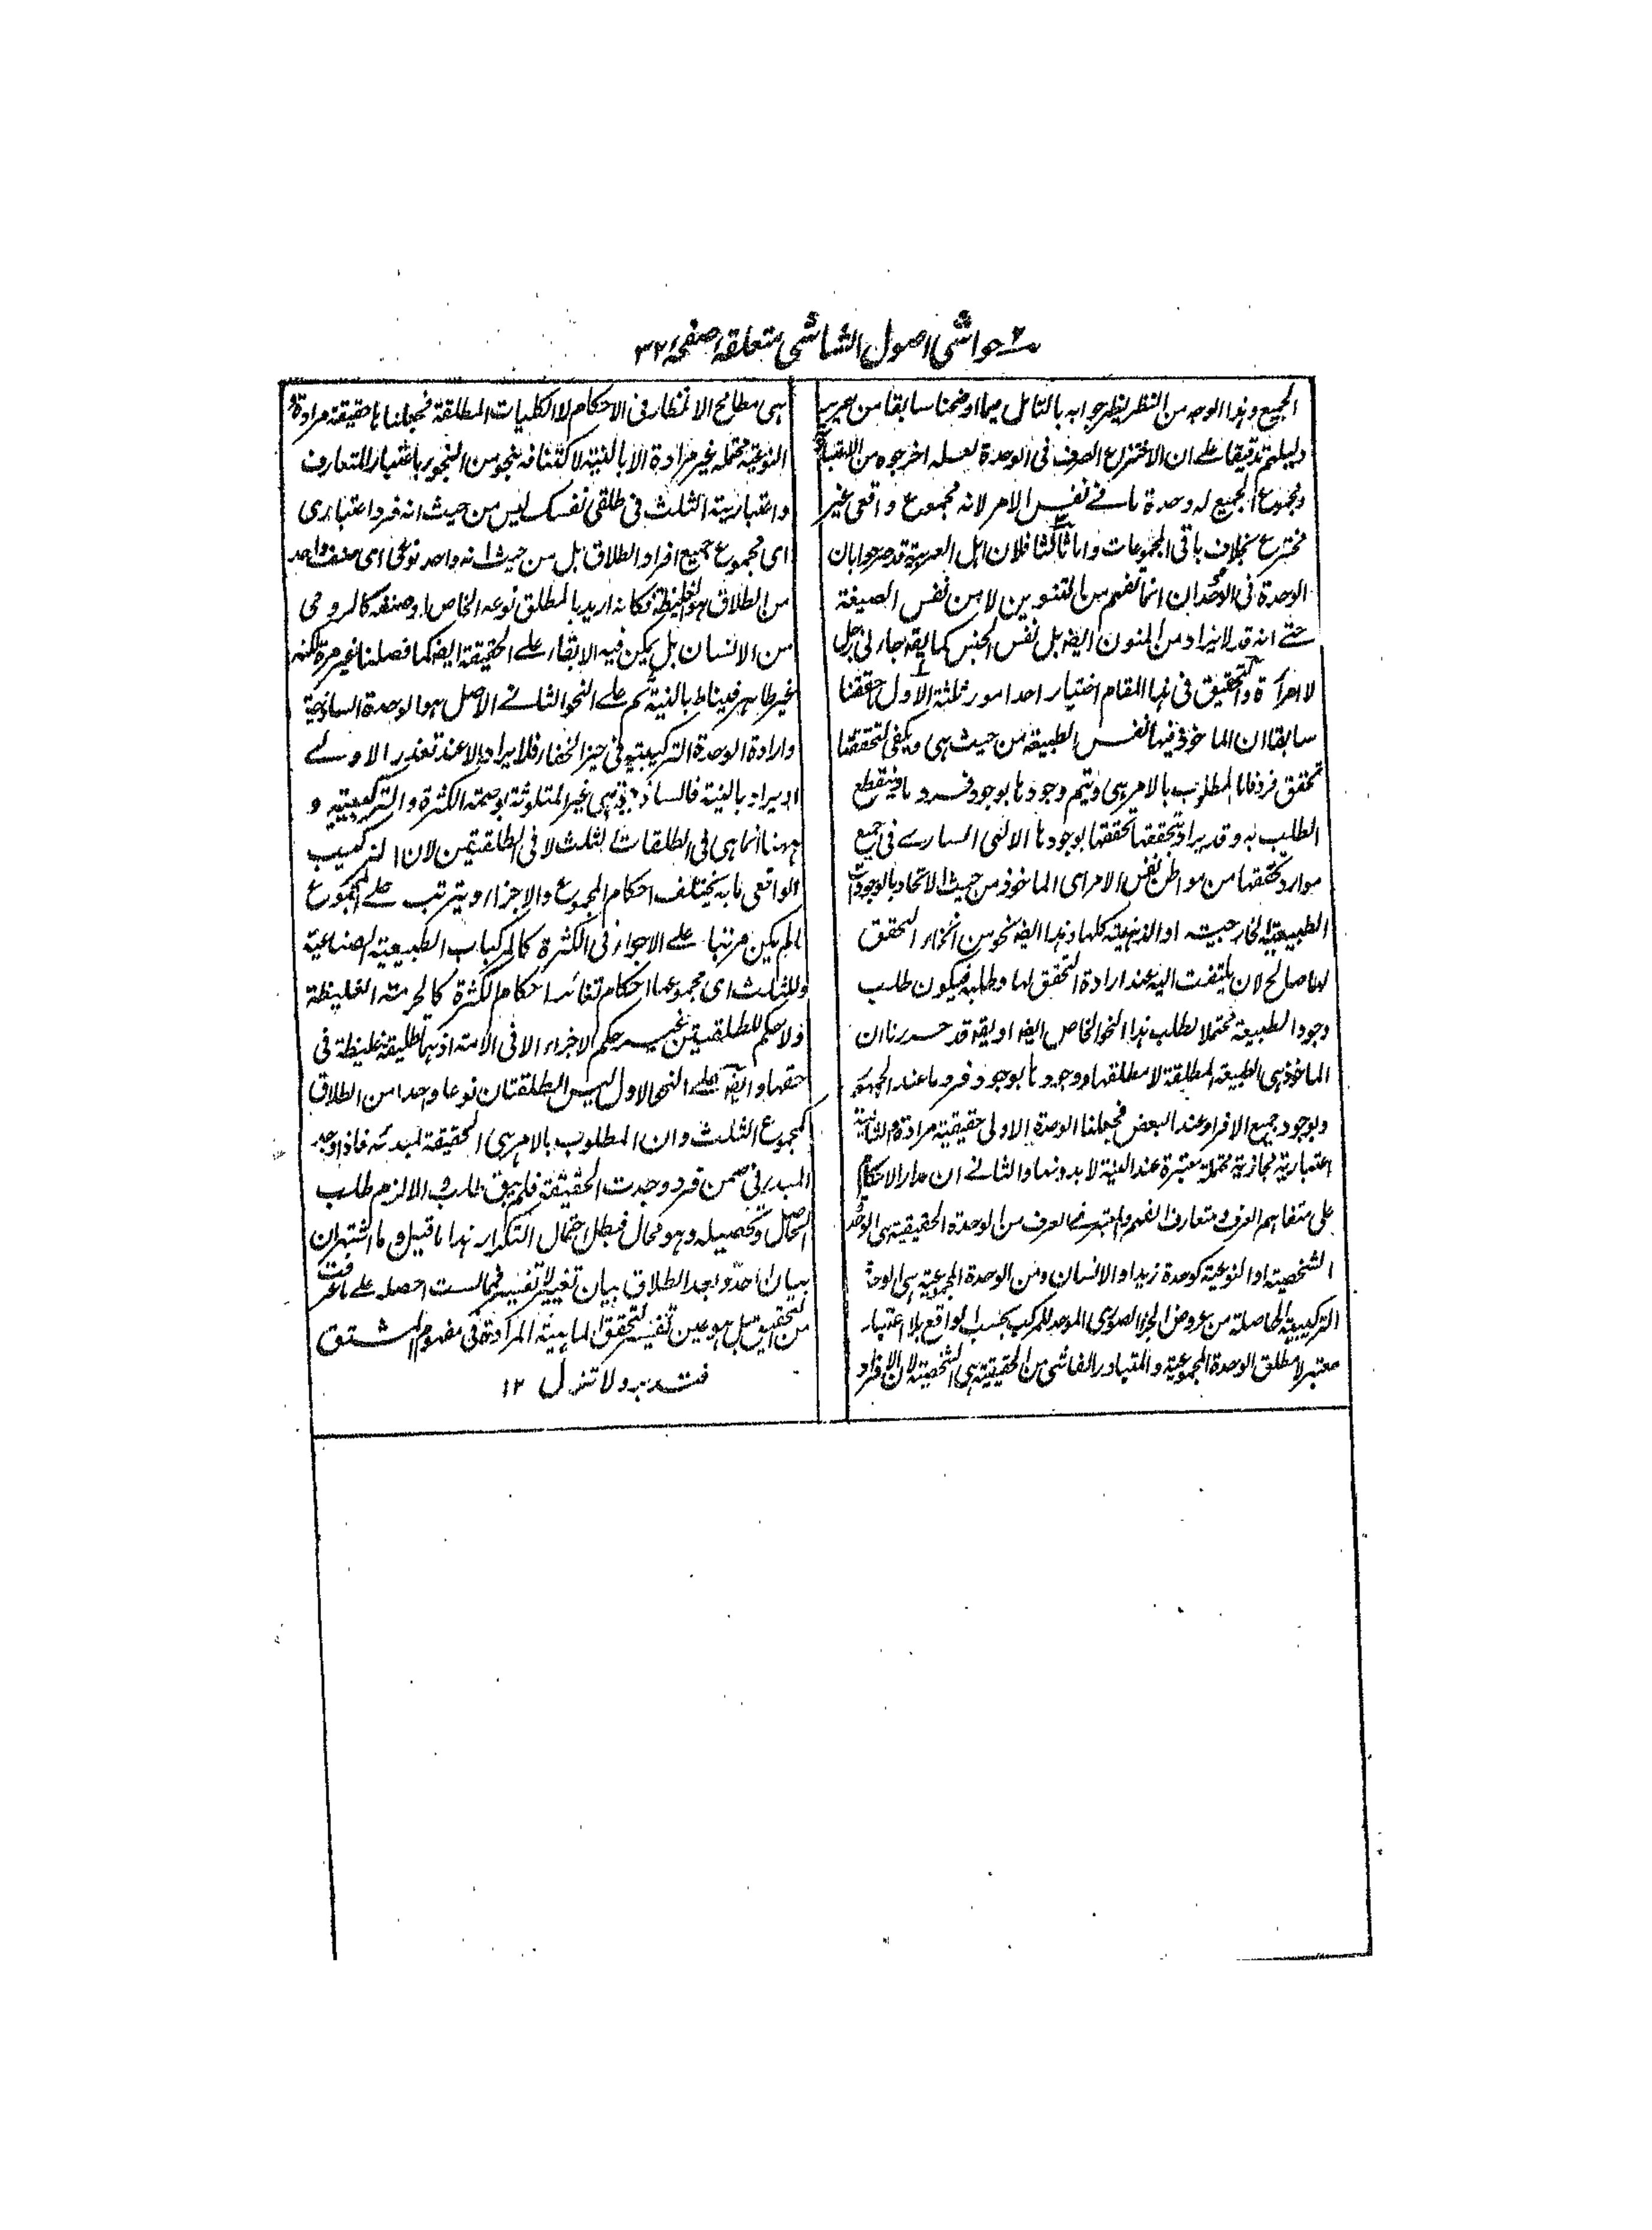 حواشی اصول الشاشی متعلقہ صفحہ ۳۲
الجمیع وہذا الوجہ من النظر یظہر جوابہ بالتامل فیما اوضحنا سابقا من
دلیلہم تدقیقا علی ان الاختراع الصرف فی الوحدة لعلہ اخرجوہ من الاعتبار
ومجموع الجمیع لہ وحدة ما فی نفس الامر لانہ مجموع واقعی غیر
مخترع بخلاف باقی المجموعات واما ثالثا فلان اہل العربیة قد صرحوا بان
الوحدة فی الوحدان انما تفہم من التنوین لا من نفس الصیغة
حتی انہ قد لا یراد من المنون ایضا بل نفس الجنس کما یقال جاءنی رجل
لا امرأة والتحقیق فی ہذا المقام اختیار احد امور ثلثة الاول ما حققنا
سابقا ان الماخوذ فیہا نفس الطبیعة من حیث ہی ویکفی لتحققہا
تحقق فرد فالمطلوب بالامر ہی ویتم وجودہا بوجود فرد ما فینقطع
الطلب بہ وقد یراد بتحققہا تحققہا بوجودہا الالہی الساری فی جمیع
موارد تحققہا من مواطن نفس الامر ای الماخوذ من حیث الاتحاد بالوجودات
الطبیعیة الخارجیة او الذہنیة کلہا وہذا ایضا نحو من انحاء التحقق
لہا صالح لان یلتفت الیہ عند ارادة التحقق لہا وطلبہ فیکون طلب
وجود الطبیعة محتملا لطلب ہذا النحو الخاص ایضا او یقال قد حررنا ان
الماخوذ ہی الطبیعة المطلقة لا مطلقہا ووجودہا بوجود فرد ما عند الجمہور
وبوجود جمیع الافراد عند البعض فجعلنا الوحدة الاولی حقیقیة مرادة والثانیة
اعتباریة مجازیة محتملة معتبرة عند النیة لا بدونہا والثانی ان مدار الاحکام
علی متفاہم العرف ومتعارف الفہم والمعتبر فی العرف من الوحدة الحقیقیة ہی الوحدة
الشخصیة او النوعیة کوحدة زید او الانسان ومن الوحدة المجموعیة ہی الوحدة
الترکیبیة الحاصلة من عروض الجزء الصوری الموحد للمرکب بحسب الواقع بلا اعتبار
معتبر لا مطلق الوحدة المجموعیة والمتبادر الفاشی من الحقیقیة ہی الشخصیة لان الافراد
ہی مطامح الانظار فی الاحکام لا الکلیات المطلقة فجعلناہا حقیقة مرادة و
النوعیة محتملة غیر مرادة الا بالنیة لاکتنافہ بنحو من التجوز باعتبار المتعارف
واعتباریة الثلث فی طلقی نفسک لیس من حیث انہ فرد اعتباری
ای مجموع جمیع افراد الطلاق بل من حیث انہ واحد نوعی ای صنف واحد
من الطلاق ہو الغلیظة فکانہ ارید بالمطلق نوعہ الخاص او صنفہ کالرومی
من الانسان بل یمکن فیہ الابقاء علی الحقیقة ایضا کما فصلنا غیر مرة لکنہ
غیر ظاہر فیناط بالنیة ثم علی النحو الثانی الاصل ہو الوحدة الساذجة
وارادة الوحدة الترکیبیة فی حیز الخفاء فلا یراد الا عند تعذر الاولی
او یراد بالنیة فالساذجة ہی غیر المتلوثة بوصمة الکثرة والترکیبیة و
ہہنا انما ہی فی الطلقات الثلث لا فی الطلقتین لان الترکیب
الواقعی ما بہ یختلف احکام المجموع والاجزاء ویترتب علی المجموع
ما لم یکن مرتبا علی الاجزاء فی الکثرة کالمرکبات الطبیعیة الصناعیة
وللثلث ای مجموعہا احکام تغائر احکام الکثرة کالحرمة الغلیظة
ولا حکم للطلقتین غیر حکم الاجزاء الا فی الامة اذ ہما طلیقة غلیظة فی
حقہا وایضا علی النحو الاول لیس الطلقتان نوعا واحدا من الطلاق
کمجموع الثلث وان المطلوب بالامر ہی الحقیقة المبدئیة فاذا وجد
المبدء فی ضمن فرد وجدت الحقیقة فلم یبق طلب والا لزم طلب
الحاصل وتحصیلہ وہو محال فبطل احتمال التکرار ہذا ما قیل وما اشتہر ان
بیان احد وابعد الطلاق بیان تغییر لا تفسیر فما لست احصلہ علی ما عرفت
من التحقیق بل ہو عین تفسیر لتحقق الماہیة المرادة فی مفہوم المشتق
فتدبر ولا تنزل ۱۲